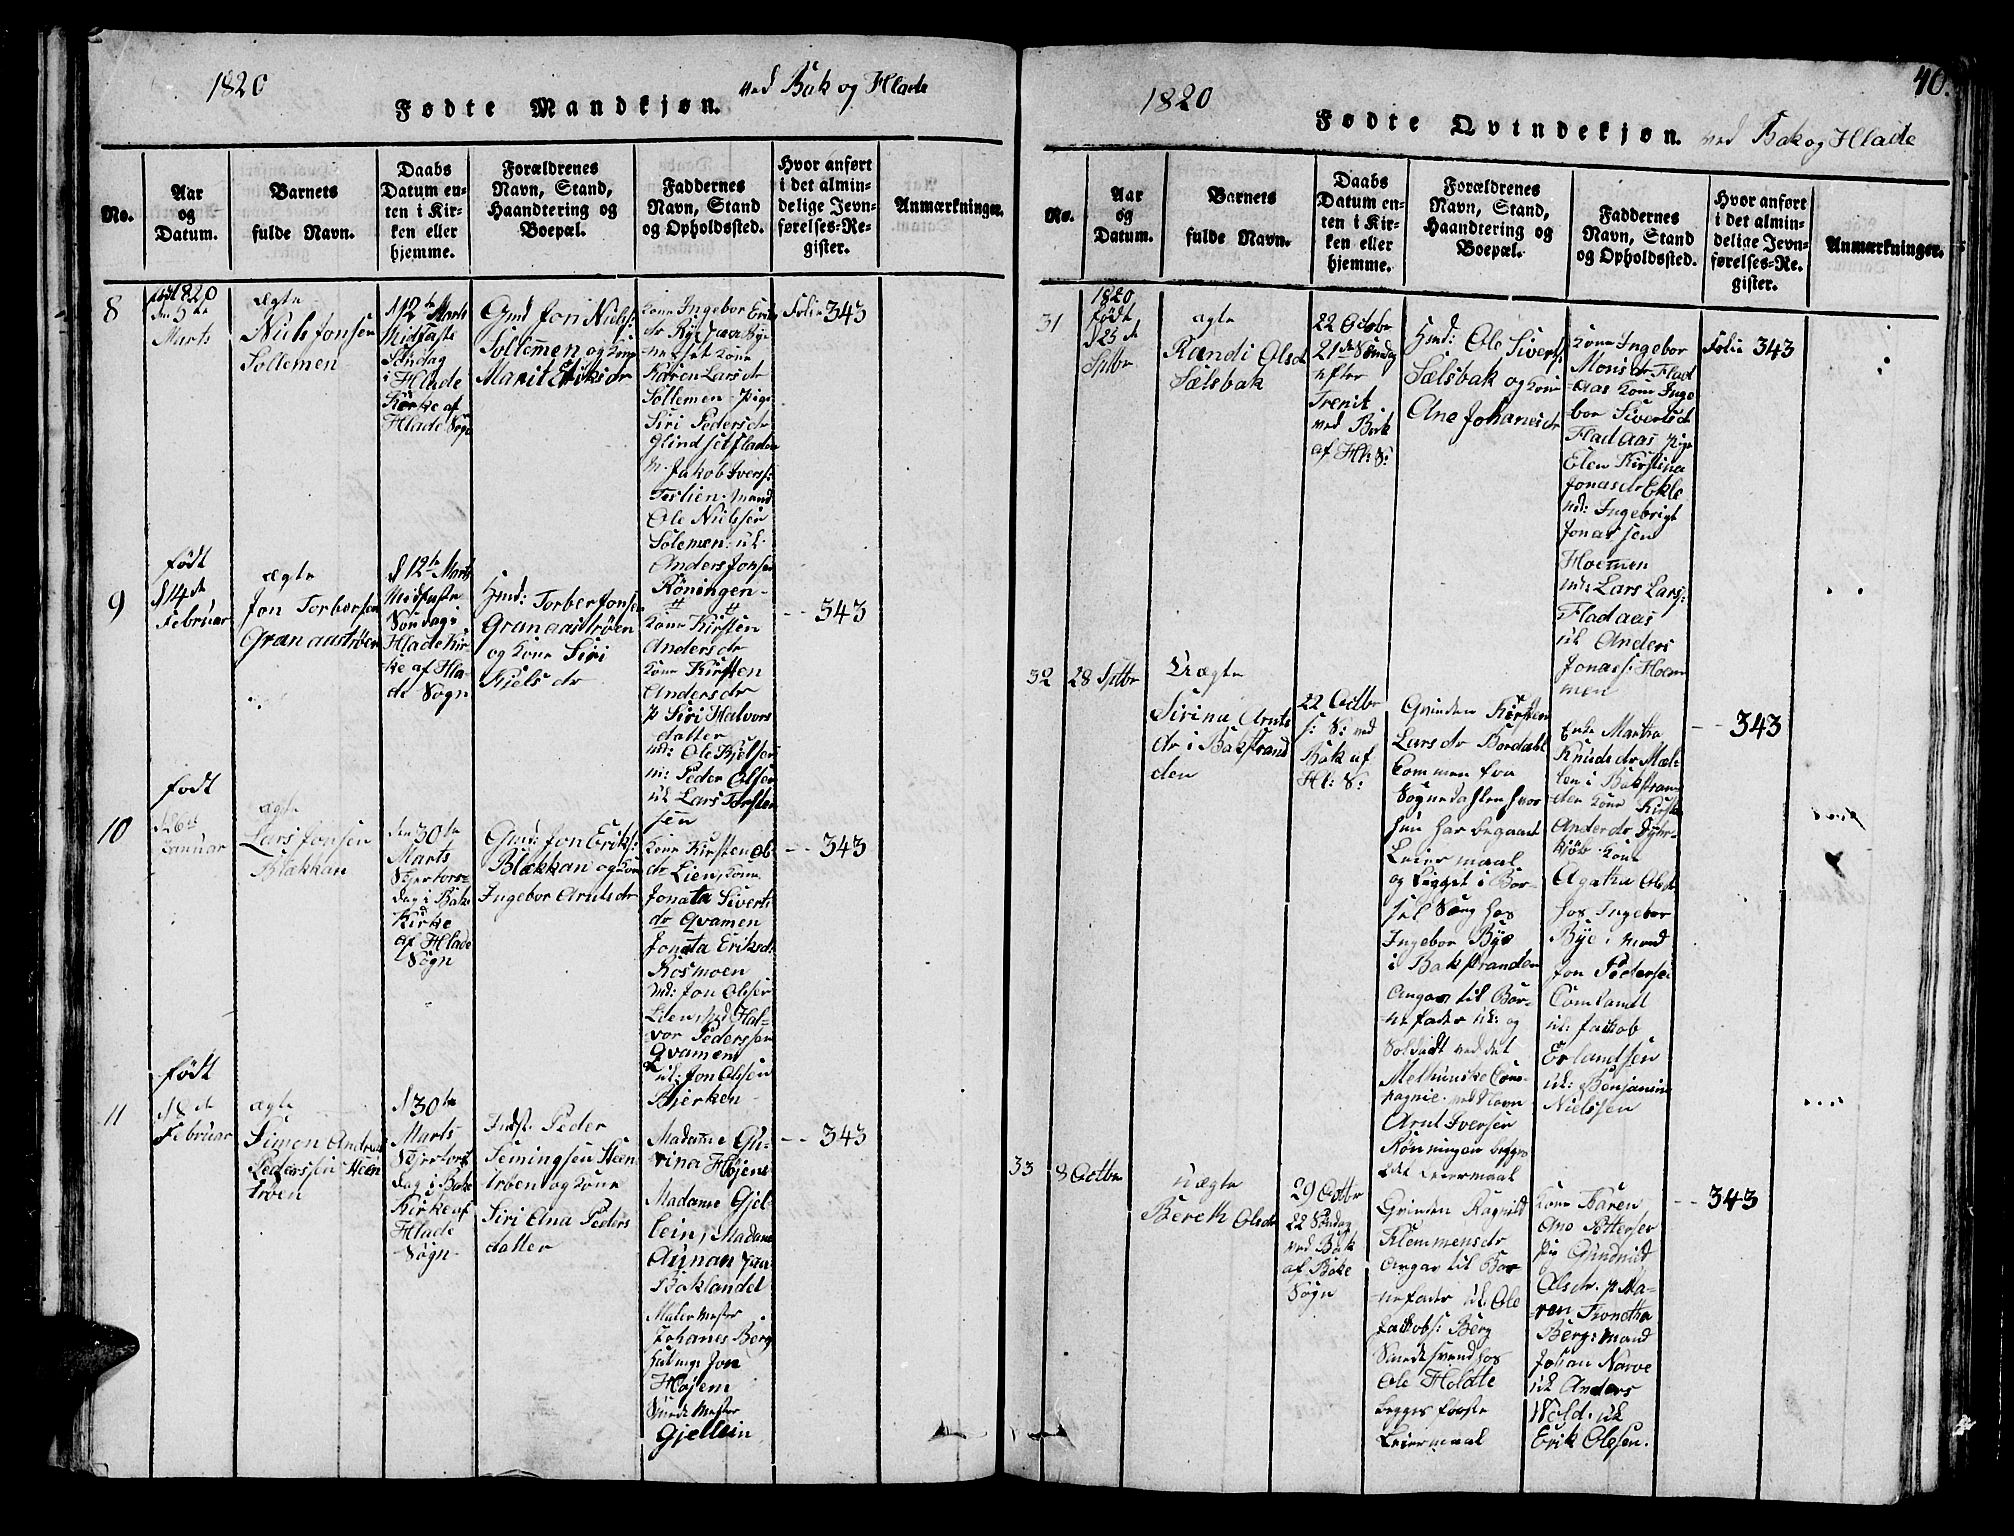 1820
ved Bak og Hlade
Fødte Mandkjøn.
No.
Aar
og
Datum.
Barnets
fulde Navn.
Daabs
Datum en-
ten i Kir-
ken eller
hjemme.
Forældrenes
Navn, Stand,
Haandtering og
Boepæl.
Faddernes
Navn, Stand
og Opholdssted.
Hvor anført
i det almin-
delige Jevn-
førelses-Re-
gister.
Anmærkninger.
8
1820
den 5te
Marts
ægte
Niels Jonsen
Sollemen
d 12te Marts
Midfaste
Søndag
i Hlade
Kirke af
Hlade Sogn
Gmd Jon Niels:
Sollemen og Kone
Marit Eriksdr
Kone Ingebor Eriks
dr
Kone
Karen Larsdr
Sollemen Pige
Siri Pedersdr
Glindset
Jakob Ivers:
Teslien mand
Ole Nielssen
Solemen uk
Anders Jonsen
Röningen
Folie 343
9
født
d 14de
Februar
ægte
Jon Torbersen
Granaaströen
d 12te Marts
Midfaste
Søndag i
Hlade Kir-
ke af Hla-
de Sogn
Hmd: Torber Jonsen
Granaaströen
og Kone Siri
Kiels dr
Kone Kirsten
Andersdr
Kone Kirsten
Andersdr
p Siri Halvors
datter
md: Ole Kjelsen
m: Peder Olsen
uk Lars Torsten
sen
-- 343
10
født
d 26de
Januar
ægte
Lars Jonsen
Blækkan
den 30te
Marts
Skjertors-
dag i Bake
Kirke
af Hlade
Sogn
Gmd: Jon Eriks:
Blækkan og Kone
Ingebor Arntsdr
Kone Kirsten Ols
dr Lien, Kone
Jonata Siverts
dr Qvamen
Jonata Eriksdr
Rosmoen
md: Jon Olsen
Lien, md Hal-
vor Pederssen
Qvamen
uk: Jon Olsen
Bjerken
-- 343
11
født
d 8de
Februar
ægte
Simon Andreas
Pederssen Steen
tröen
d 30te
Marts
Skjertors
dag i Bake
Kirke af
Hlade
Sogn
Indst: Peder
Femingsen Steen
tröen og Kone
Siri Ana Peders
datter
Madame Gu-
rina Højem
Madame Gjel-
lein, Madame
Aunan fra
Baklandet
Maler Mester
Johanes Berg
Jon
Højem
Smede Mester
Gjellein
-- 343
40.
1820
Fødte Qvindekjøn.
ved Bak og Hlade
No.
Aar
og
Datum.
Barnets
fulde Navn.
Daabs
Datum en-
ten i Kir-
ken eller
hjemme.
Forældrenes
Navn, Stand,
Haandtering og
Boepæl.
Faddernes
Navn, Stand
og Opholdssted.
Hvor anført
i det almin-
delige Jevn-
førelses-Re-
gister.
Anmærkninger.
31
1820
født
d 25de
Sptbr
ægte
Randi Olsdr
Sælsbak
22 Octbr
21de Søndag
efter
Trenit.
ved Bak
af Hl: S:
Hmd: Ole Siverts
Sælsbak og Kone
Ane Johanesdr
Kone Ingebor
Monsdr Flad
aas Kone Inge
bor Sivertsdr
Fladaas Pige
Elen Kirstina
Jonasdr Ekle
md: Ingebrigt
Jonassen
Hoemen
md: Lars Lars:
Fladaas
uk Anders
Jonas: Hoem
men
Folie 343
32
28 Sptbr
Uægte
Sirina Arnts
dr i Bakstrand
den
22 Octbr
f: S: ved
Bak af
Hl: S:
Qvinden Kirsten
Larsdr Bordahl
Kommen fra
Sognedahlen hvor
hun har begaaet
Leiermaal
og ligget i Bar-
sel Seng hos
Ingebor Bye
i Bakstranden
Angav til Bar-
nefader uk: og
Soldadt ved det
Melhuuske Com-
pagnie ved Navn
Arnt Iversen
Rønningen begges
1det Leiermaal
Enke Martha
Knudsdr Møl-
len i Bakstran
den Kone Kirsten
Andersdr Dyhr-
kjøb Kone
Agatha Olsdr
hos Ingebor
Bye: mand
Jon Pedersen
Comsandt
uk: Jakob
Erlandsen
uk: Benjamin
Nielssen
-- 343
33
8 Octbr
Uægte
Bereth Olsdr
29 Octbr
22 Søndag
ved Bak
af Bake
Sogn
Qvinden Ragnild
Klemmensdr
Angav til Bar
nefader uk: Ole
Jakobs: Berg
Smedesvend hos
Ole Holdte
begges første
Leiermaal
Kone Karen
Ane Pettersen
Pig Gundnild
Olsdr. p Ma-
ren Tronetha
Berg: mand
Johan Narve
uk Anders
Wold. uk
Erik Olesen.
-- 343